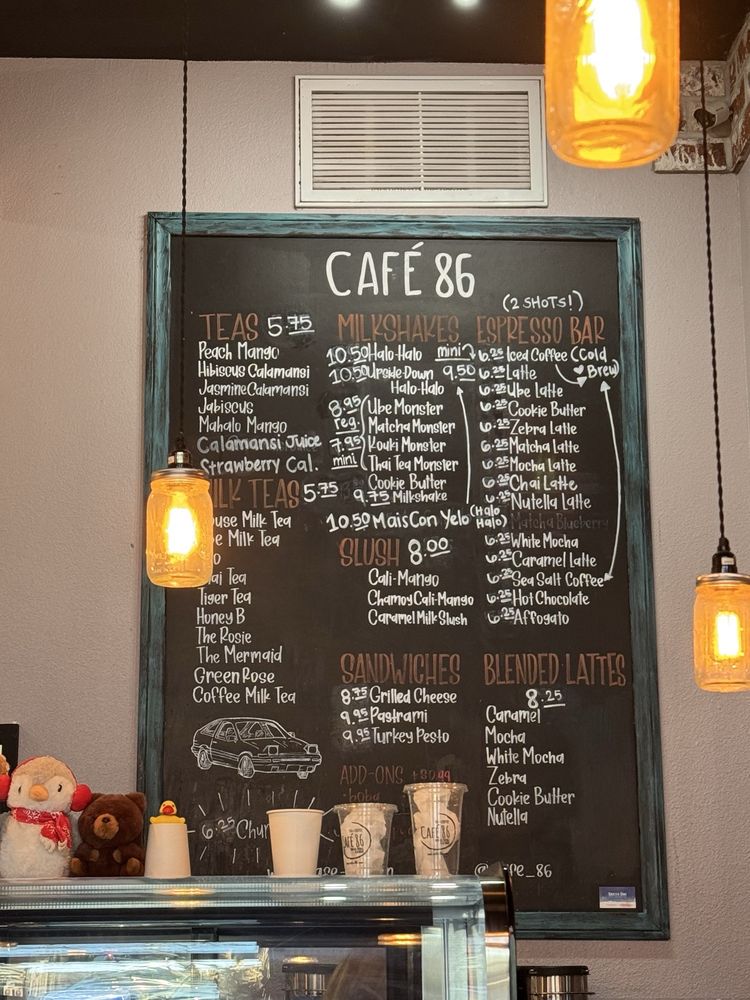 CAFÉ 86
TEAS 5.75
Peach Mango
Hibiscus Calamansi
Jasmine Calamansi
Jabiscus
Mahalo Mango
Calamansi Juice
Strawberry Cal.
MILK TEAS 5.75
House Milk Tea
Milk Tea
Tea
Tiger Tea
Honey B
The Rosie
The Mermaid
Green Rose
Coffee Milk Tea
6.25
MILKSHAKES
10.50 Halo-Halo mini
10.50 Upside-Down 9.50
Halo-Halo
8.95 Ube Monster
reg. Matcha Monster
7.95 Kouki Monster
mini Thai Tea Monster
Cookie Butter
9.75 Milkshake
10.50 Mais Con Yelo (Halo Halo)
SLUSH 8.00
Cali-Mango
Chamoy Cali-Mango
Caramel Milk Slush
SANDWICHES
8.75 Grilled Cheese
9.95 Pastrami
9.95 Turkey Pesto
ADD-ONS +$0.99
-boba
(2 SHOTS!)
ESPRESSO BAR
6.25 Iced Coffee (Cold Brew)
6.25 Latte
6.25 Ube Latte
6.25 Cookie Butter
6.25 Zebra Latte
6.25 Matcha Latte
6.25 Mocha Latte
6.25 Chai Latte
6.25 Nutella Latte
Matcha Blueberry
6.25 White Mocha
6.25 Caramel Latte
6.25 Sea Salt Coffee
6.25 Hot Chocolate
6.25 Affogato
BLENDED LATTES
8.25
Caramel
Mocha
White Mocha
Zebra
Cookie Butter
Nutella
CAFÉ 86
CAFÉ 86